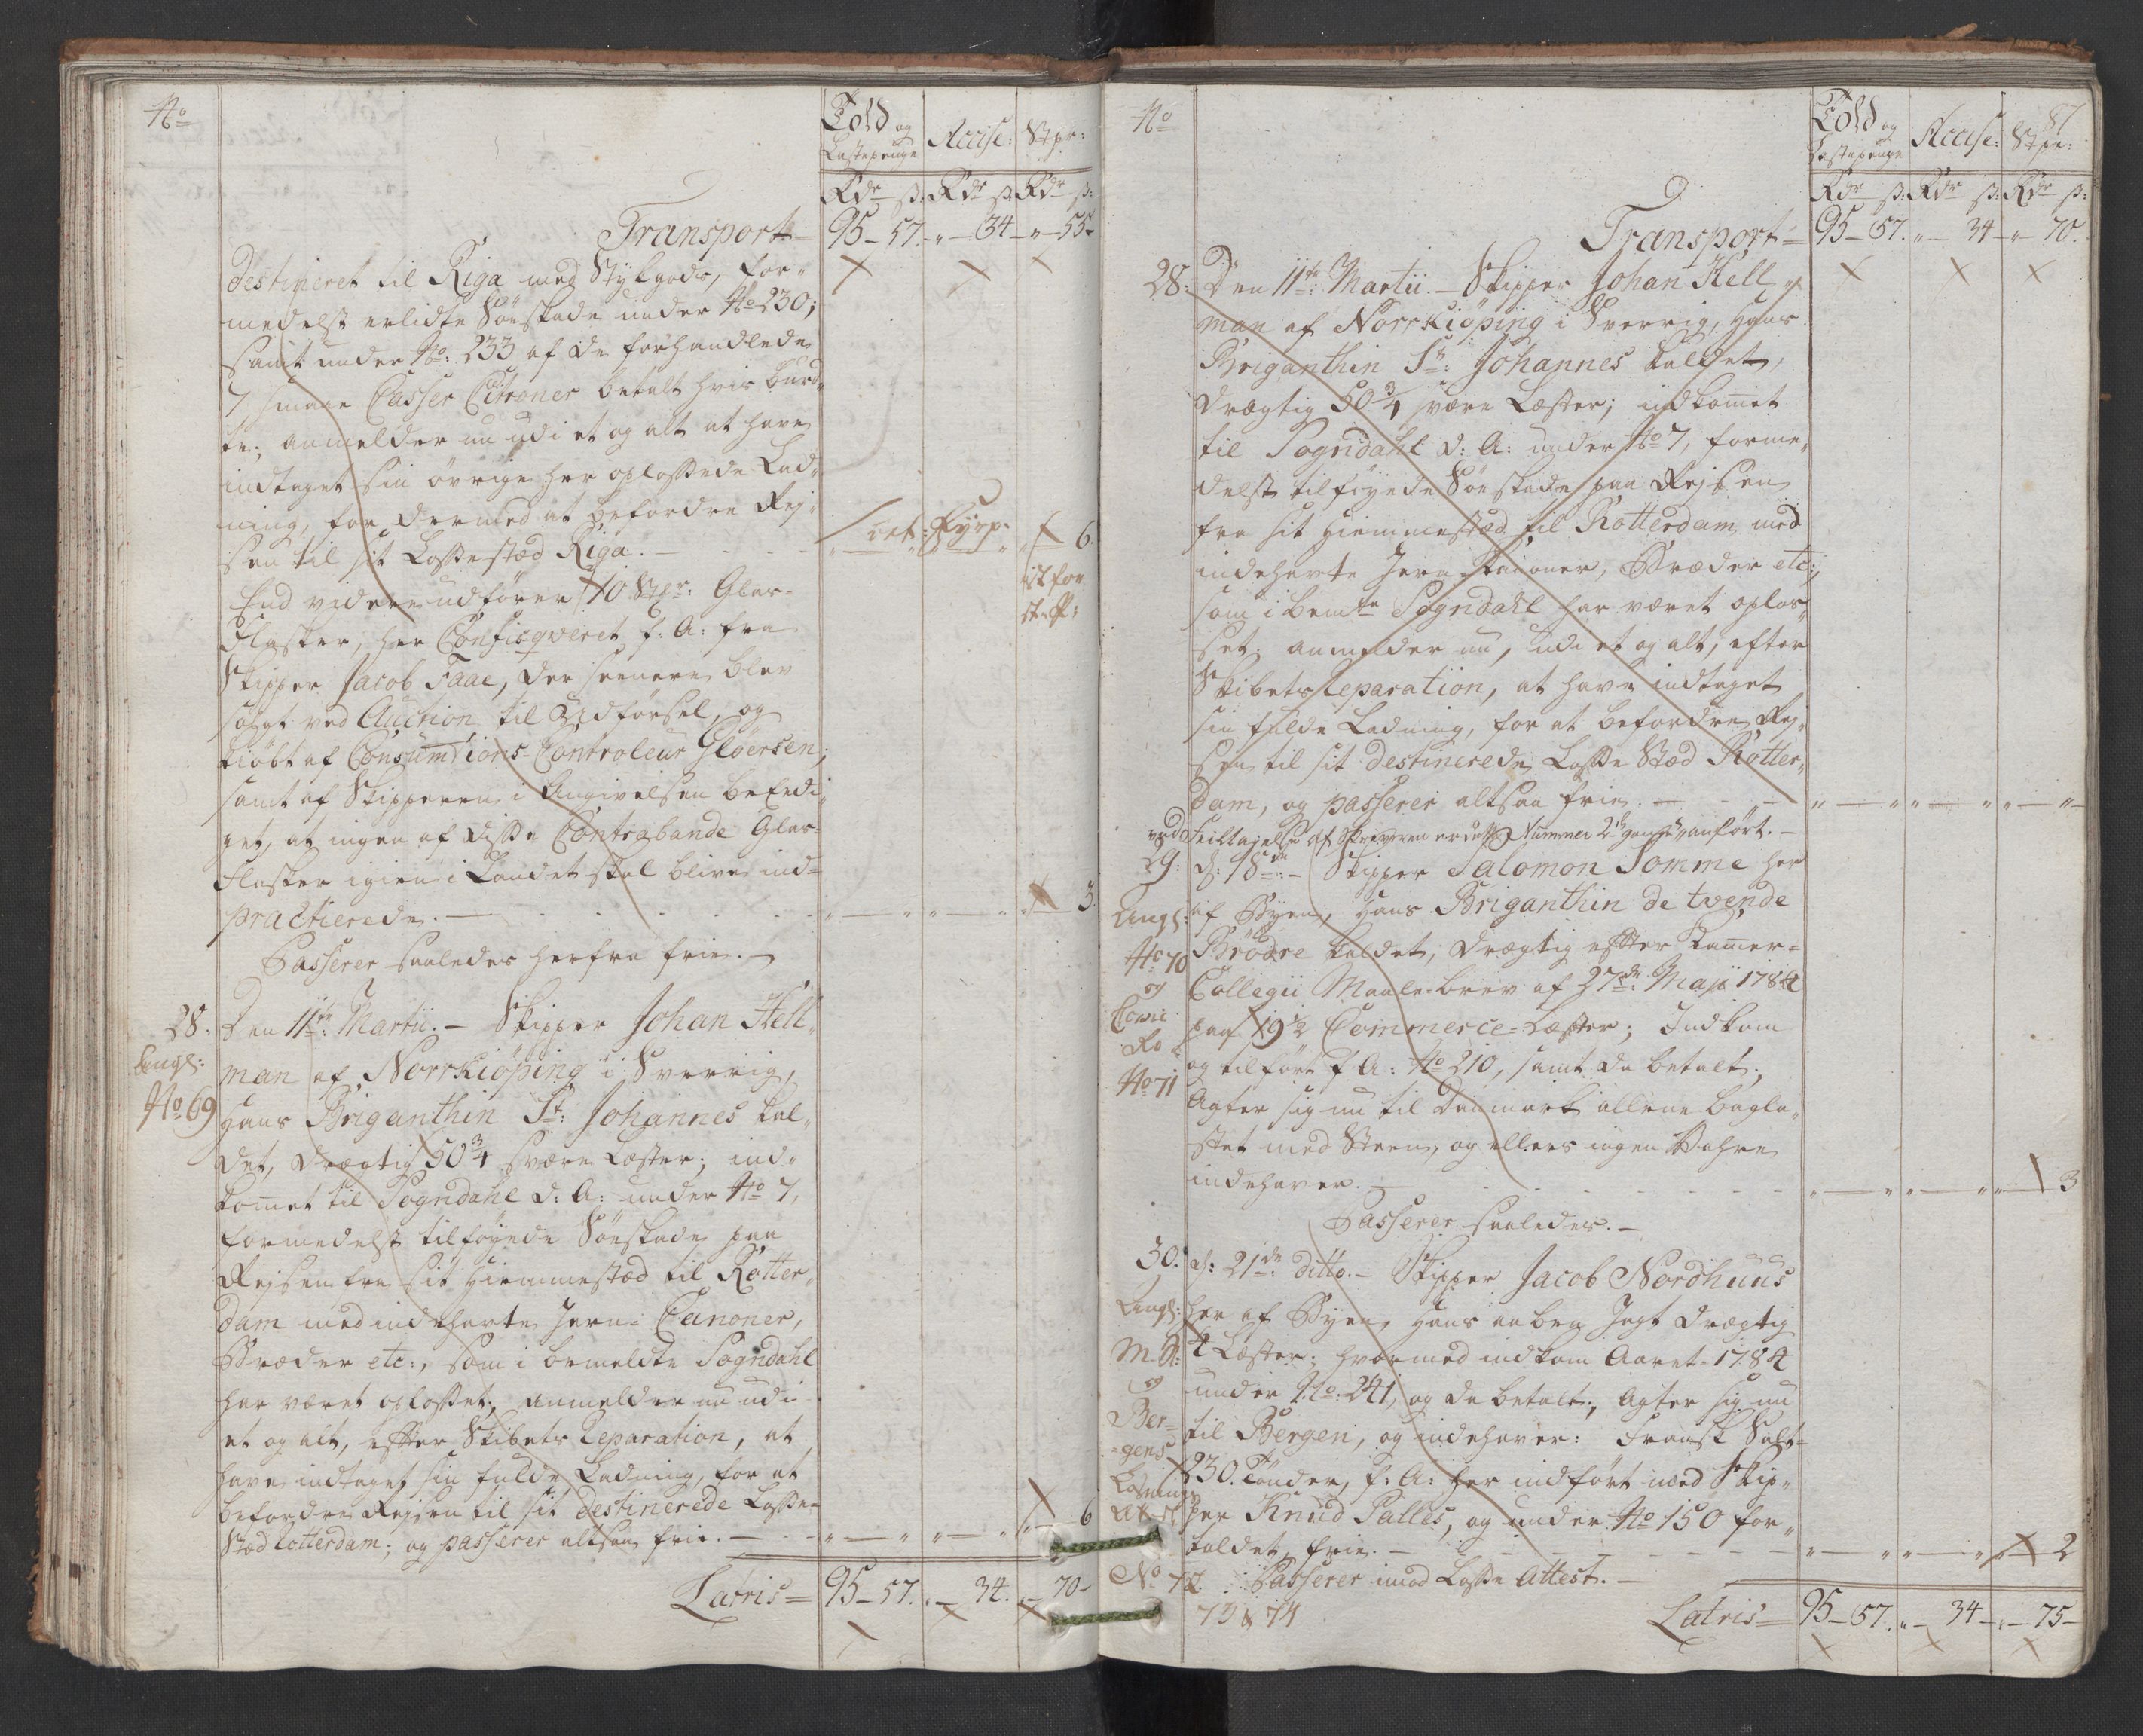 No
Told og Lastepenge
Accise:
Stpr:
Rdr ß: Rdr ß: Rdr ß:
Transport 95 – 57. „ – 34 – „ – 55
destineret til Riga med Stykgods, for-
medelst erlidte Söeskade under No 230;
samt under No: 233 af de forhandlede
7 smaae Casser Citroner betalt hvis burd-
te; anmelder nu udi et og alt at have
indtaget sin övrige her oplossede Lad-
ning, for dermed at befordre Rej-
sen til sit Lossestæd Riga. – „ – „ „ – „ „ – 6.
End videre udförer 10 Glas-
Flasker, her Confisqveret f: A: fra
Skipper Jacob Faae, der senere blev
solgt ved Auction til Udförsel, og
kiöbt af Consumtions-Controleur Glöersen;
samt af Skipperen i Angivelsen beEedi-
get, at ingen af disse Contrabande Glas-
Flasker igien i Landet skal blive ind-
practicerede. – „ – „ „ – „ „ – 3.
Passerer saaledes herfra frie. –
28. Den 11te: Martii. – Skipper Johan Hell-
Angl: man af Norrkiöping i Sverrig,
No 69 Hans Briganthin St: Johannes kal-
det, drægtig 50 3/4 svære Læster; ind-
komet til Sogndahl d: A: under No 7,
formedelst tilföyede Söeskade paa
Rejsen fra sit Hiemmestæd til Rotter-
dam med indehavte Jern-Canoner,
Bræder etc:, som i bemeldte Sogndahl
har været oplosset; anmelder nu udi
et og alt, efter Skibets Reparation, at
have indtaget sin fulde Ladning, for at
befordre Rejsen til sit destinerede Losse-
Stæd Rotterdam; og passerer altsaa frie. – „ – „ „ – „ „ – 6
Latris = 95 – 57. „ – 34. „ – 70 –
87
No
Told og Lastepenge
Accise:
Stpr:
Rdr ß: Rdr ß: Rdr ß:
Transport = 95 – 57. „ – 34 – „ – 70.
28: Den 11te: Martii. – Skipper Johan Hell-
man af Norrkiöping i Sverrig, Hans
Briganthin St: Johannes kaldet,
drægtig 50 3/4 svære Læster; indkomet
til Sogndahl d: A: under No 7, forme-
delst tilföyede Söeskade paa Rejsen
fra sit Hiemmestæd til Rotterdam med
indehavte Jern-Kanoner, Bræder etc:,
som i bemte Sogndahl har været oplos-
set; anmelder nu, udi et og alt, efter
Skibets Reparation, at have indtaget
sin fulde Ladning, for at befordre Rej-
sen til sit destinerede Losse Stæd Rotter-
dam, og passerer altsaa frie. – „ – „ „ – „ „ – „
ved Feiltagelse af Skriveren er dette Nummer 2de gange anfört. –
29: d: 18de: – Skipper Salomon Somme her
Angl: af Byen, Hans Briganthin de tvende
No 70 Brödre kaldet, drægtig efter Kamer-
og Collegii Maale-brev af 27de: Maji 1784
paa 19 1/2 Commerce-Læster; Indkom
og tilfört f A: No 210, samt da betalt;
No 71 Agter sig nu til Danmark allene bagla-
stet med Steen, og ellers ingen Vahre
indehaver. – „ – „ „ – „ „ – 3
Passerer saaledes. –
30. d: 21de: ditto. – Skipper Jacob Nordhuus
Angl: her af Byen, Hans aaben Jagt drægtig
4 Læster; hvormed indkom Aaret 1784
og under No: 241, og da betalt; Agter sig nu
Ber- til Bergen, og indehaver: Fransk Salt
gens 230. Tönder, f: A: her indfört med Skip-
per Knud Salles, og under No 150 for-
toldet, frie. – „ – „ „ – „ „ – 2
No 72 Passerer imod Losse Attest. –
73 & 74
Latris = 95 – 57. „ – 34 – „ – 75 –